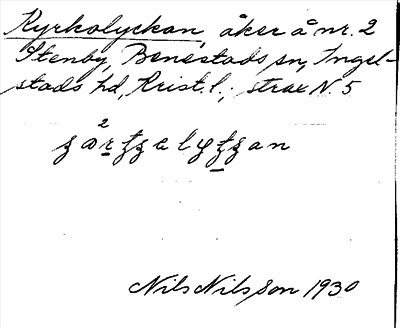 Kyrkolyckan, åker å nr. 2
Stenby, Benestads sn, Ingel-
stads hd, Krist. l.; strax N. 5
Nils Nilsson 1930